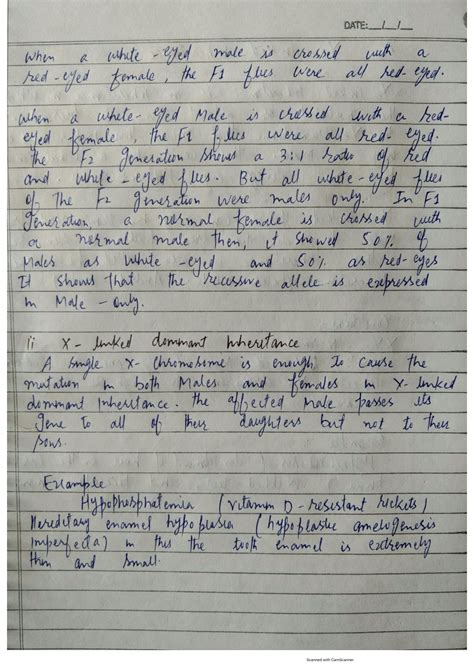 DATE:__/__/__
When a white-eyed male is crossed with a
red-eyed female, the F1 flies were all red-eyed.
When a white-eyed Male is crossed with a red-
eyed female, the F1 flies were all red-eyed.
The F2 generation shows a 3:1 ratio of red
and white-eyed flies. But all white-eyed flies
of the F2 generation were males only. In F1
generation, a normal female is crossed with
a normal male then, it showed 50% of
Males as white-eyed and 50% as red-eyes
It shows that the recessive allele is expressed
in Male-only.
X-linked dominant Inheritance
A single X-chromosome is enough to cause the
mutation in both Males and females in X-linked
dominant Inheritance. The affected Male passes its
gene to all of their daughters but not to their
sons.
Example
Hypophosphatemia (vitamin D-resistant rickets)
Hereditary enamel hypoplasia (hypoplastic amelogenesis
Imperfecta) in this the tooth enamel is extremely
thin and small.
Scanned with CamScanner